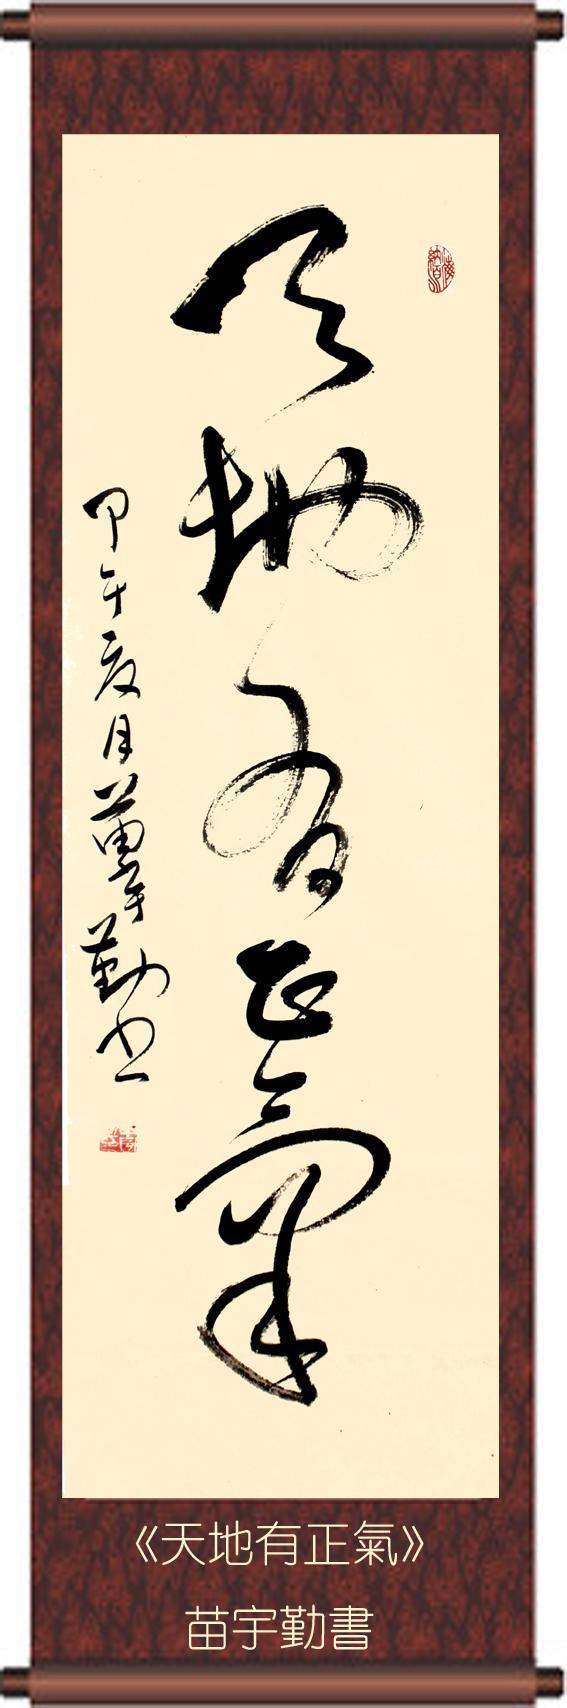 天地有正氣
甲午夏月苗宇勤书
《天地有正氣》
苗宇勤書